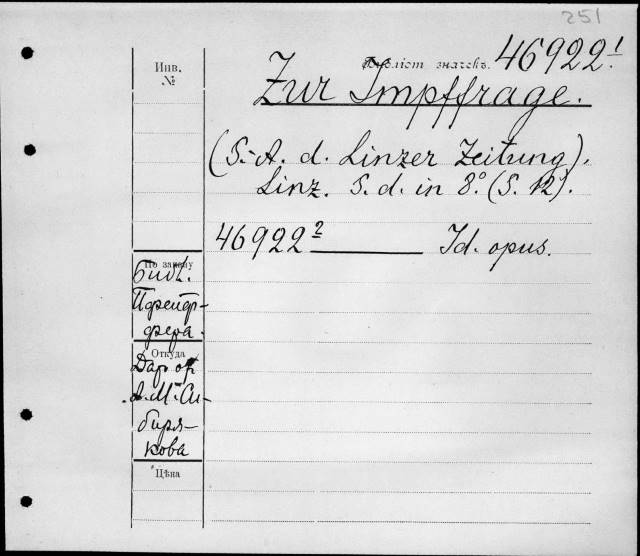 251
Инв.
№
Библіот значекъ.
46922¹.
Zur Impffrage.
(S.-A. d. Linzer Zeitung).
Linz. S. d. in 8º. (S. 12).
46922² ——— Id. opus.
По закону
Библ.
Пфейф-
фера.
Откуда
Дар от
А. М. Си-
биря-
кова
Цѣна